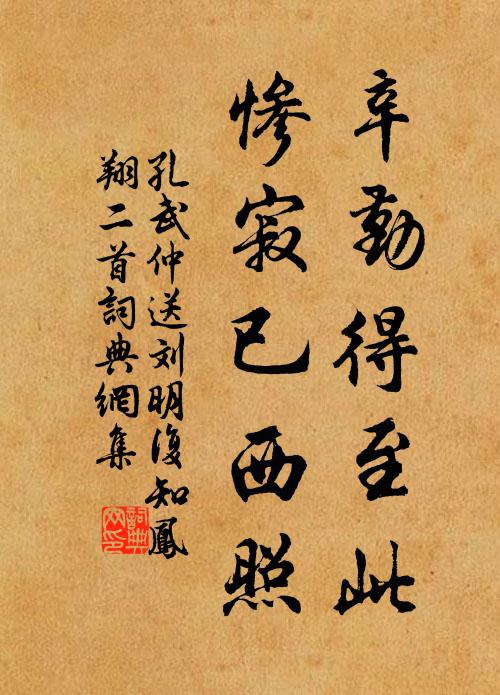 辛勤得至此
惨寂已西照
孔武仲送刘明復知鳳
翔二首詞典網集
詞典
网印